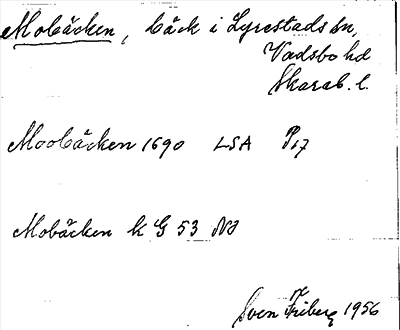 Mobäcken, bäck i Lyrestads sn,
Vadsbo hd
Skarab. l.
Moobäcken 1690 LSA P17
Mobäcken k G 53 NJ
Sven Friberg 1956